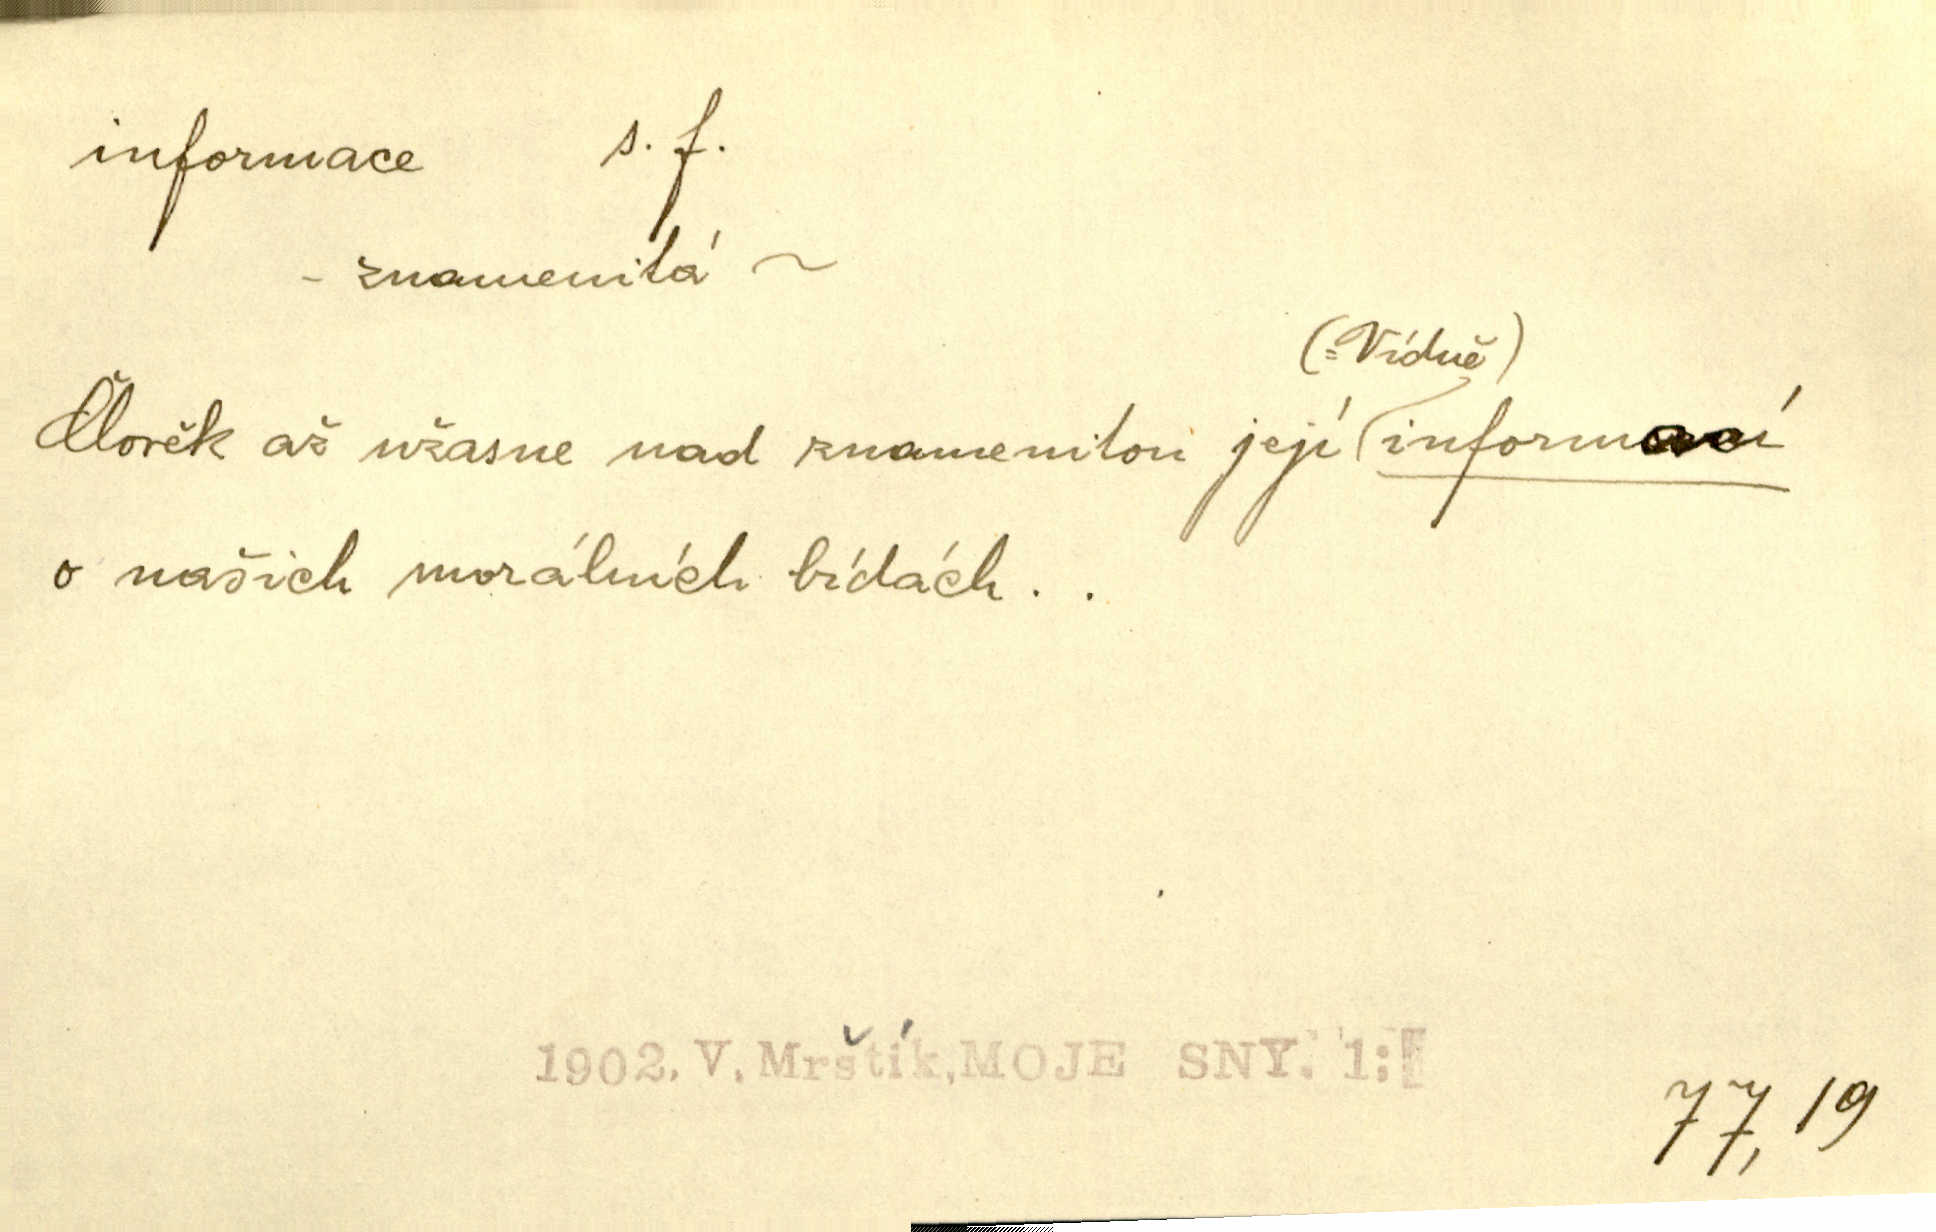 informace s. f.
- znamenitá ~
(= Vídně)
Člověk až užasne nad znamenitou její informací
o našich morálních bídách . .
1902. V. Mrštík, MOJE SNY. 1:
77, 19